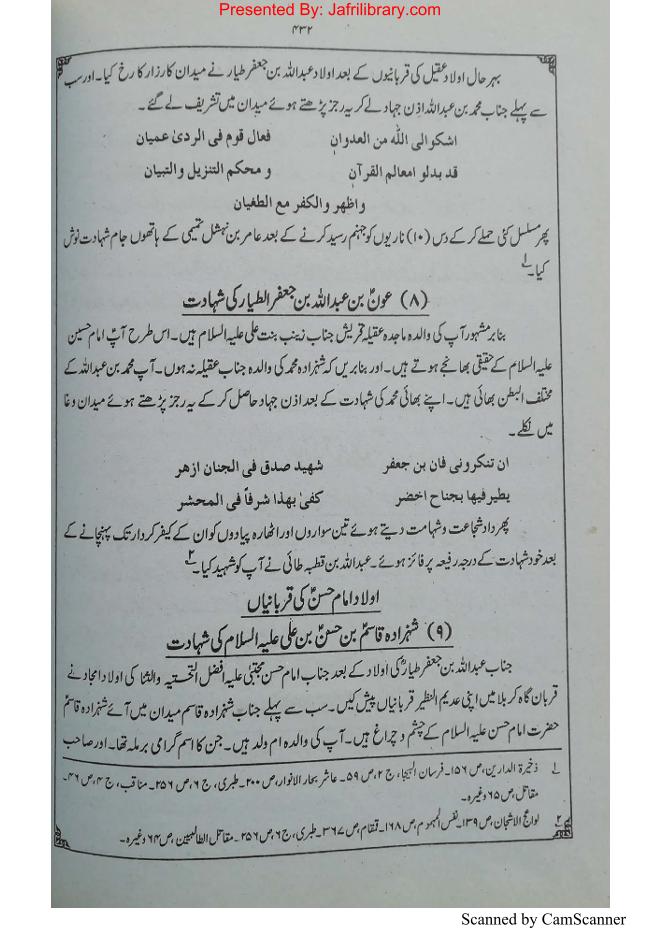 Presented By: Jafrilibrary.com
۴۳۲
بہر حال اولاد عقیل کی قربانیوں کے بعد اولاد عبداللہ بن جعفر طیار نے میدان کارزار کا رخ کیا۔ اور سب
سے پہلے جناب محمد بن عبداللہ اذن جہاد لے کر یہ رجز پڑھتے ہوئے میدان میں تشریف لے گئے۔
اشکو الی اللّٰہ من العدوان فعال قوم فی الردیٰ عمیان
قد بدلو امعالم القرآن و محکم التنزیل والتبیان
واظهر والکفر مع الطغیان
پھر مسلسل کئی حملے کر کے دس (۱۰) ناریوں کو جہنم رسید کرنے کے بعد عامر بن نہشل تمیمی کے ہاتھوں جام شہادت نوش
کیا۔ ۱؎
(۸) عونؑ بن عبداللہ بن جعفر الطیار کی شہادت
بنا بر مشہور آپ کی والدہ ماجدہ عقیلہ قریش جناب زینب بنت علی علیہ السلام ہیں۔ اس طرح آپ امام حسین
علیہ السلام کے حقیقی بھانجے ہوتے ہیں۔ اور بنا بریں کہ شہزادہ محمد کی والدہ جناب عقیلہ نہ ہوں۔ آپ محمد بن عبداللہ کے
مختلف البطن بھائی ہیں۔ اپنے بھائی محمد کی شہادت کے بعد اذن جہاد حاصل کر کے یہ رجز پڑھتے ہوئے میدان وغا
میں نکلے۔
ان تنکرونی فان بن جعفر شهید صدق فی الجنان ازهر
یطیر فیها بجناح اخضر کفیٰ بهذا شرفاً فی المحشر
پھر داد شجاعت و شہامت دیتے ہوئے تین سواروں اور اٹھارہ پیادوں کو ان کے کیفر کردار تک پہنچانے کے
بعد خود شہادت کے درجہ رفیعہ پر فائز ہوئے۔ عبداللہ بن قطبہ طائی نے آپ کو شہید کیا۔ ۲؎
اولاد امام حسنؑ کی قربانیاں
(۹) شہزادہ قاسمؑ بن حسنؑ بن علی علیہ السلام کی شہادت
جناب عبداللہ بن جعفر طیارؓ کی اولاد کے بعد جناب امام حسن مجتبیٰ علیہ افضل التحیۃ والثنا کی اولاد امجاد نے
قربان گاہ کربلا میں اپنی عدیم النظیر قربانیاں پیش کیں۔ سب سے پہلے جناب شہزادہ قاسم میدان میں آئے شہزادہ قاسمؑ
حضرت امام حسن علیہ السلام کے چشم و چراغ ہیں۔ آپ کی والدہ ام ولد ہیں۔ جن کا اسم گرامی برملہ تھا۔ اور صاحب
۱؎ ذخیرۃ الدارین، ص ۱۵۶۔ فرسان الہیجا، ج ۲، ص ۵۹۔ عاشر بحار الانوار، ص ۲۰۰۔ طبری، ج ۶، ص ۲۵۶۔ مناقب، ج ۴، ص ۴۶۔
مقاتل، ص ۶۵ وغیرہ۔
۲؎ لواعج الاشجان، ص ۱۳۹۔ نفس المہموم، ص ۱۶۸۔ قمقام، ص ۳۶۷۔ طبری، ج ۶، ص ۲۵۶۔ مقاتل الطالبیین، ص ۶۴ وغیرہ۔
Scanned by CamScanner